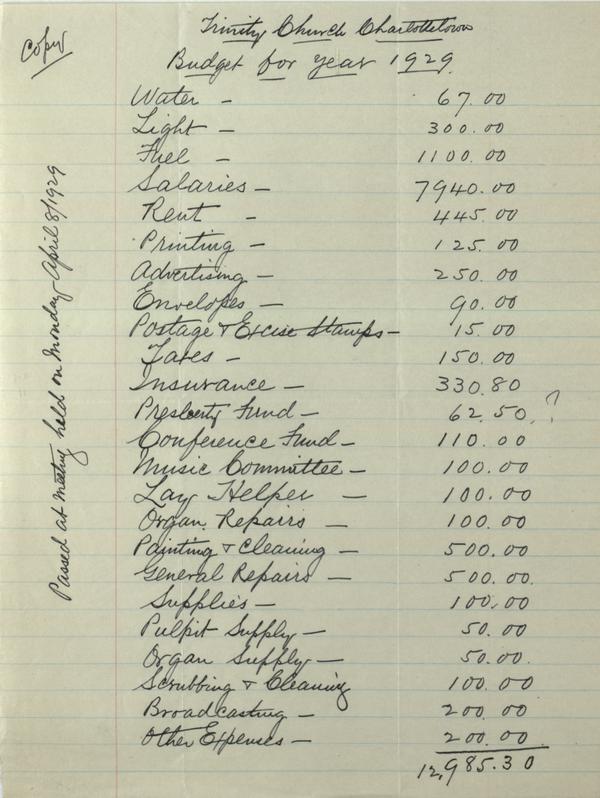 Copy
Trinity Church Charlottetown
Budget for year 1929
Water – 67.00
Light – 300.00
Fuel – 1100.00
Salaries – 7940.00
Rent – 445.00
Printing – 125.00
Advertising – 250.00
Envelopes – 90.00
Postage & Excise Stamps – 15.00
Taxes – 150.00
Insurance – 330.80
Presbcty Fund – 62.50 ?
Conference Fund – 110.00
Music Committee – 100.00
Lay Helper – 100.00
Organ Repairs – 100.00
Painting & Cleaning – 500.00
General Repairs – 500.00
Supplies – 100.00
Pulpit Supply – 50.00
Organ Supply – 50.00
Scrubbing & Cleaning 100.00
Broadcasting – 200.00
Other Expenses – 200.00
12,985.30
Passed at meeting held on Monday April 8/1929